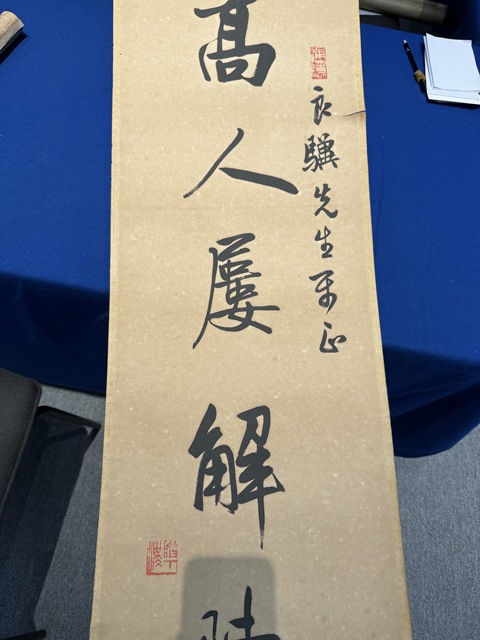 良驥先生正
高人屢解